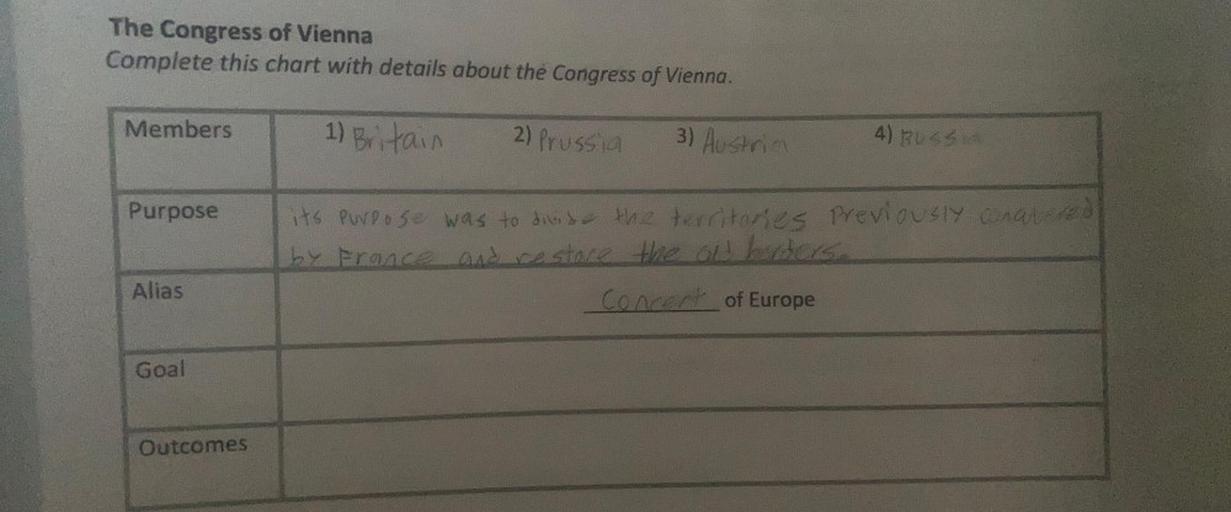 The Congress of Vienna
Complete this chart with details about the Congress of Vienna.
Members 1) Britain 2) Prussia 3) Austria 4) Russia
Purpose its purpose was to divide the territories previously
by France and restore the old borders.
Alias Concert of Europe
Goal
Outcomes